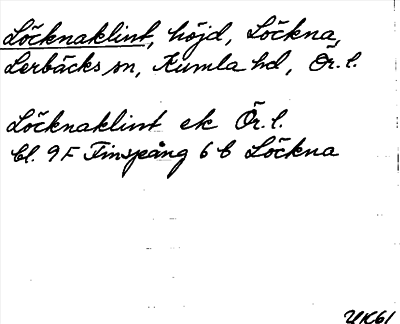 Löcknaklint, höjd, Löckna,
Lerbäcks sn, Kumla hd, Ör. l.
Löcknaklint ek Ör. l.
bl. 9F Finspång 6 b Löckna
UK61